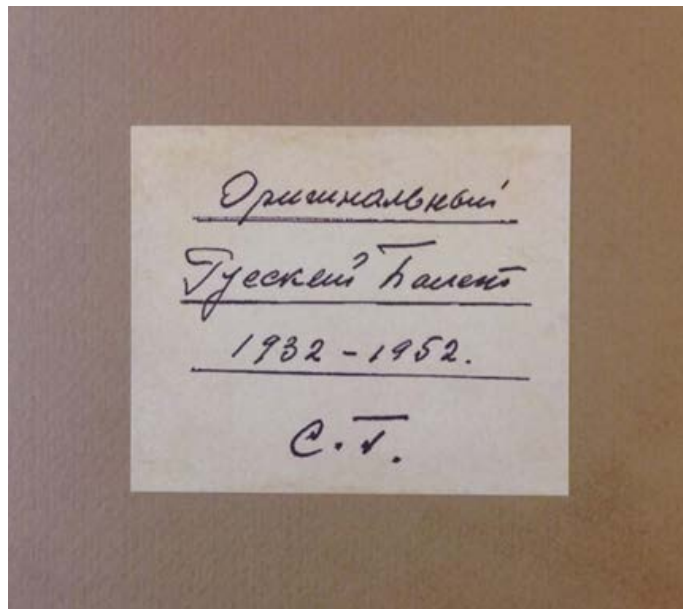 Оригинальный
Русский Балет
1932-1952.
С.Г.